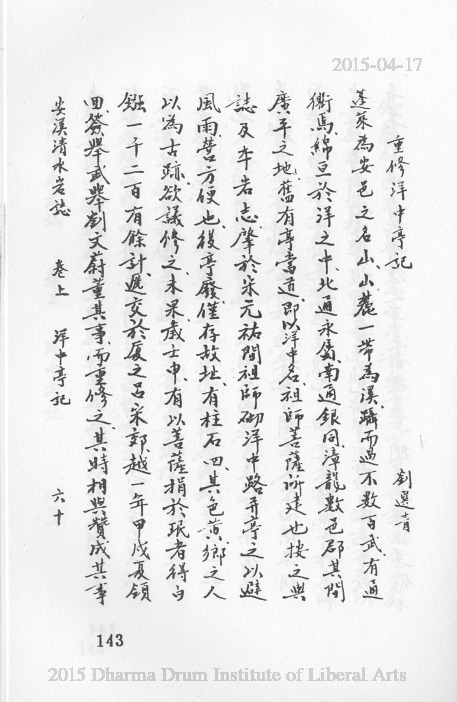 2015-04-17
重修洋中亭記
劉選青
蓬萊為安邑之名山山麓一帶為溪躡而過不數百武有通
衢焉綿亘於洋之中北通永屬南通銀同漳龍數邑郡其間
廣平之地舊有亭當道即以洋中名祖師菩薩所建也按之輿
誌及本岩志肇於宋元祐間祖師砌洋中路并亭之以避
風雨營方便也後亭廢僅存故址有柱石四其色黃鄉之人
以為古跡欲議修之未果歲壬申有以菩薩捐於珉者得白
鏹一千二百有餘計遞交於廈之呂宋郊越一年甲戌夏領
回簽舉武舉劉文蔚董其事而重修之其時相與贊成其事
安溪清水岩誌 卷上 洋中亭記 六十
143
2015 Dharma Drum Institute of Liberal Arts